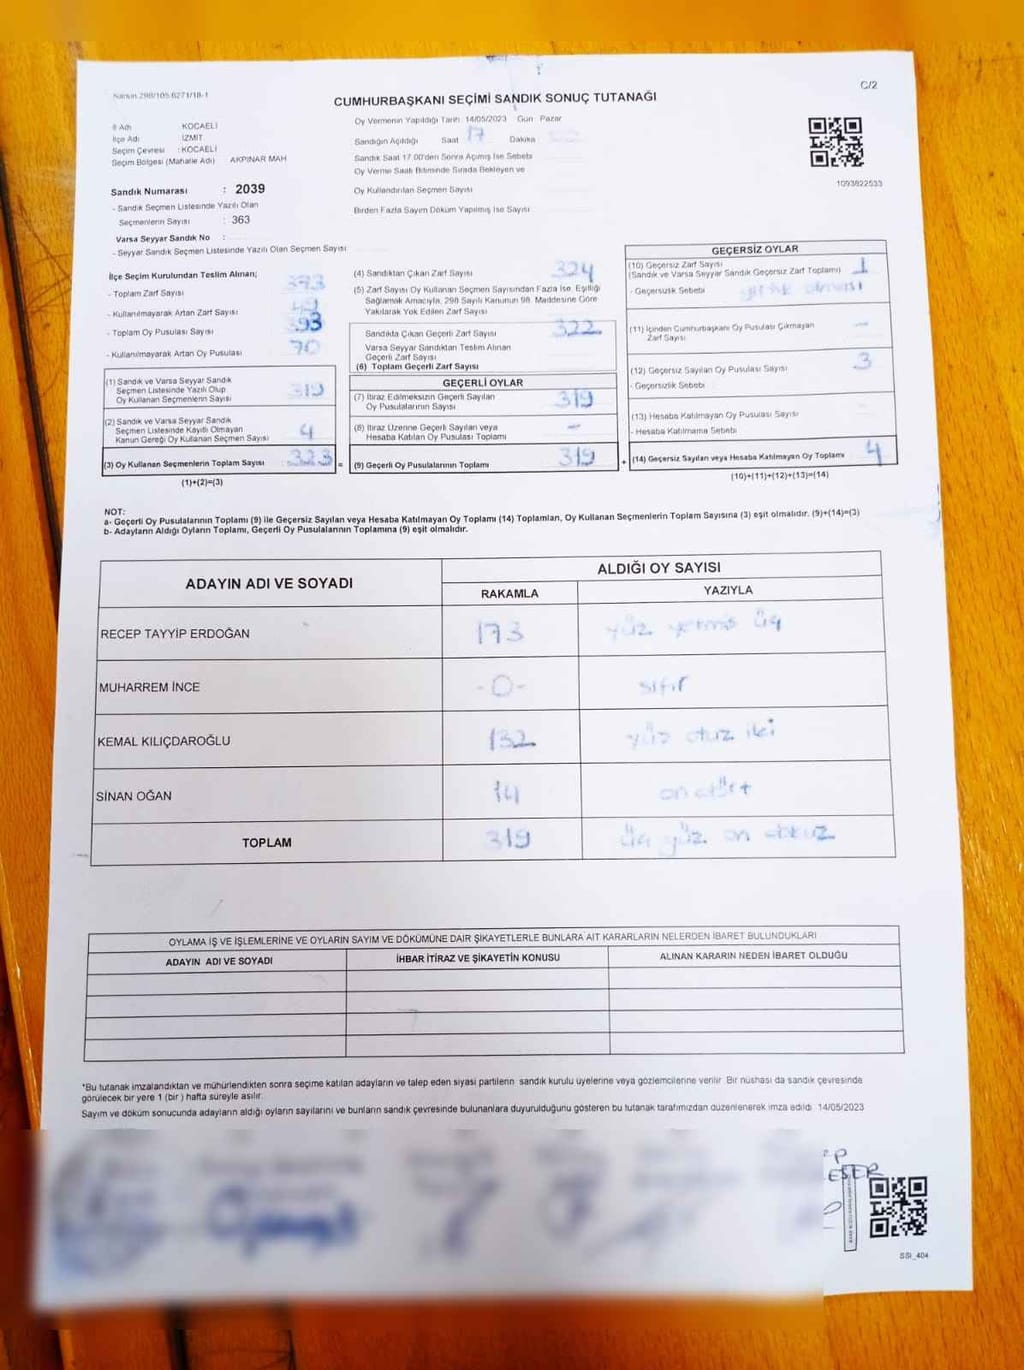 Kanun 298/105 6271/18-1
C/2
CUMHURBAŞKANI SEÇİMİ SANDIK SONUÇ TUTANAĞI
Oy Vermenin Yapıldığı Tarih 14/05/2023 Gün Pazar
İl Adı KOCAELİ
İlçe Adı İZMİT
Seçim Çevresi : KOCAELİ
Seçim Bölgesi (Mahalle Adı) AKPINAR MAH
Sandığın Açıldığı Saat 17 Dakika
Sandık Saat 17.00'den Sonra Açılmış İse Sebebi
Oy Verme Saati Bitiminde Sırada Bekleyen ve
Oy Kullandırılan Seçmen Sayısı
Birden Fazla Sayım Döküm Yapılmış İse Sayısı
1093822533
Sandık Numarası : 2039
- Sandık Seçmen Listesinde Yazılı Olan
Seçmenlerin Sayısı : 363
Varsa Seyyar Sandık No :
- Seyyar Sandık Seçmen Listesinde Yazılı Olan Seçmen Sayısı
İlçe Seçim Kurulundan Teslim Alınan;
- Toplam Zarf Sayısı 373
- Kullanılmayarak Artan Zarf Sayısı 49
- Toplam Oy Pusulası Sayısı 393
- Kullanılmayarak Artan Oy Pusulası 70
(1) Sandık ve Varsa Seyyar Sandık
Seçmen Listesinde Yazılı Olup
Oy Kullanan Seçmenlerin Sayısı 319
(2) Sandık ve Varsa Seyyar Sandık
Seçmen Listesinde Kayıtlı Olmayan
Kanun Gereği Oy Kullanan Seçmen Sayısı 4
(3) Oy Kullanan Seçmenlerin Toplam Sayısı 323 =
(1)+(2)=(3)
(4) Sandıktan Çıkan Zarf Sayısı 324
(5) Zarf Sayısı Oy Kullanan Seçmen Sayısından Fazla İse, Eşitliği
Sağlamak Amacıyla, 298 Sayılı Kanunun 98. Maddesine Göre
Yakılarak Yok Edilen Zarf Sayısı
Sandıkta Çıkan Geçerli Zarf Sayısı 322
Varsa Seyyar Sandıktan Teslim Alınan
Geçerli Zarf Sayısı
(6) Toplam Geçerli Zarf Sayısı
GEÇERLİ OYLAR
(7) İtiraz Edilmeksizin Geçerli Sayılan
Oy Pusulalarının Sayısı 319
(8) İtiraz Üzerine Geçerli Sayılan veya
Hesaba Katılan Oy Pusulası Toplamı -
(9) Geçerli Oy Pusulalarının Toplamı 319 +
GEÇERSİZ OYLAR
(10) Geçersiz Zarf Sayısı 1
(Sandık ve Varsa Seyyar Sandık Geçersiz Zarf Toplamı)
- Geçersizlik Sebebi yırtık olması
(11) İçinden Cumhurbaşkanı Oy Pusulası Çıkmayan
Zarf Sayısı -
(12) Geçersiz Sayılan Oy Pusulası Sayısı 3
- Geçersizlik Sebebi
(13) Hesaba Katılmayan Oy Pusulası Sayısı
- Hesaba Katılmama Sebebi
(14) Geçersiz Sayılan veya Hesaba Katılmayan Oy Toplamı 4
(10)+(11)+(12)+(13)=(14)
NOT:
a- Geçerli Oy Pusulalarının Toplamı (9) ile Geçersiz Sayılan veya Hesaba Katılmayan Oy Toplamı (14) Toplamları, Oy Kullanan Seçmenlerin Toplam Sayısına (3) eşit olmalıdır. (9)+(14)=(3)
b- Adayların Aldığı Oyların Toplamı, Geçerli Oy Pusulalarının Toplamına (9) eşit olmalıdır.
ADAYIN ADI VE SOYADI
ALDIĞI OY SAYISI
RAKAMLA YAZIYLA
RECEP TAYYİP ERDOĞAN 173 yüz yetmiş üç
MUHARREM İNCE -0- sıfır
KEMAL KILIÇDAROĞLU 132 yüz otuz iki
SİNAN OĞAN 14 on dört
TOPLAM 319 üç yüz on dokuz
OYLAMA İŞ VE İŞLEMLERİNE VE OYLARIN SAYIM VE DÖKÜMÜNE DAİR ŞİKAYETLERLE BUNLARA AİT KARARLARIN NELERDEN İBARET BULUNDUKLARI
ADAYIN ADI VE SOYADI İHBAR İTİRAZ VE ŞİKAYETİN KONUSU ALINAN KARARIN NEDEN İBARET OLDUĞU
*Bu tutanak imzalandıktan ve mühürlendikten sonra seçime katılan adayların ve talep eden siyasi partilerin sandık kurulu üyelerine veya gözlemcilerine verilir. Bir nüshası da sandık çevresinde
görülecek bir yere 1 (bir) hafta süreyle asılır.
Sayım ve döküm sonucunda adayların aldığı oyların sayılarını ve bunların sandık çevresinde bulunanlara duyurulduğunu gösteren bu tutanak tarafımızdan düzenlenerek imza edildi. 14/05/2023
SSI_404